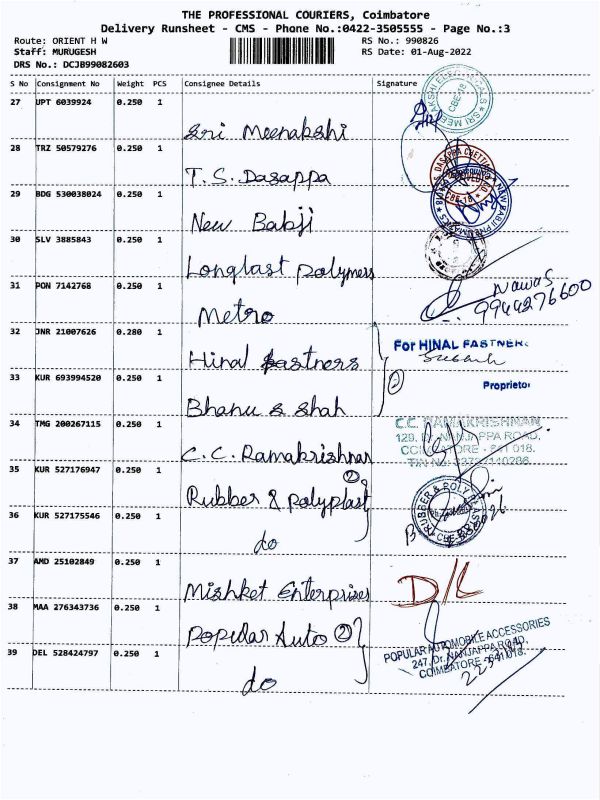 THE PROFESSIONAL COURIERS, Coimbatore
Delivery Runsheet - CMS - Phone No.:0422-3505555 - Page No.:3
Route: ORIENT H W RS No.: 990826
Staff: MURUGESH RS Date: 01-Aug-2022
DRS No.: DCJB99082603
S No Consignment No Weight PCS Consignee Details Signature
27 UPT 6039924 0.250 1
Sri Meenakshi
28 TRZ 50579276 0.250 1
T.S. Dasappa
29 BDG 530038024 0.250 1
New Babji
30 SLV 3885843 0.250 1
Longlast polymers
31 PON 7142768 0.250 1
Nawas
9944276600
Metro
32 JNR 21007626 0.280 1
For HINAL FASTNER
Hinal fastners
33 KUR 693994520 0.250 1
②
Proprietor
Bhanu & Shah
34 TMG 200267115 0.250 1
C.C. RAMAKRISHNAN
129, Dr. NANJAPPA ROAD,
COIMBATORE - 641 018.
C.C. Ramakrishnan
35 KUR 527176947 0.250 1
②
Rubber & polyplast
36 KUR 527175546 0.250 1
do
37 AMD 25102849 0.250 1
D/L
Mishket Enterprises
38 MAA 276343736 0.250 1
Popular Auto ②
POPULAR AUTOMOBILE ACCESSORIES
247, Dr. NANJAPPA ROAD,
COIMBATORE - 641 018.
39 DEL 528424797 0.250 1
do